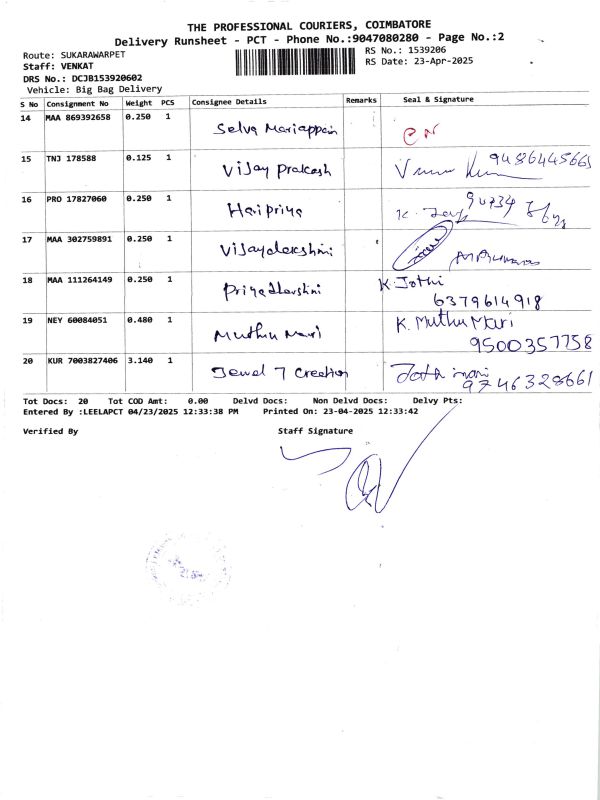 THE PROFESSIONAL COURIERS, COIMBATORE
Delivery Runsheet - PCT - Phone No.:9047080280 - Page No.:2
Route: SUKARAWARPET
RS No.: 1539206
Staff: VENKAT
RS Date: 23-Apr-2025
DRS No.: DCJB153920602
Vehicle: Big Bag Delivery
S No Consignment No Weight PCS Consignee Details Remarks Seal & Signature
14 MAA 869392658 0.250 1 Selva Mariappan
15 TNJ 178588 0.125 1 Vijay Prakash 9486445665
16 PRO 17827060 0.250 1 Haripriya
17 MAA 302759891 0.250 1 Vijayalakshmi
18 MAA 111264149 0.250 1 Priyadharshni K. Jothi
6379614918
19 NEY 60084051 0.480 1 Muthu Mari K. Muthu Mari
9500357758
20 KUR 7003827406 3.140 1 Jewel 7 Creation
9746328661
Tot Docs: 20 Tot COD Amt: 0.00 Delvd Docs: Non Delvd Docs: Delvy Pts:
Entered By :LEELAPCT 04/23/2025 12:33:38 PM Printed On: 23-04-2025 12:33:42
Verified By Staff Signature